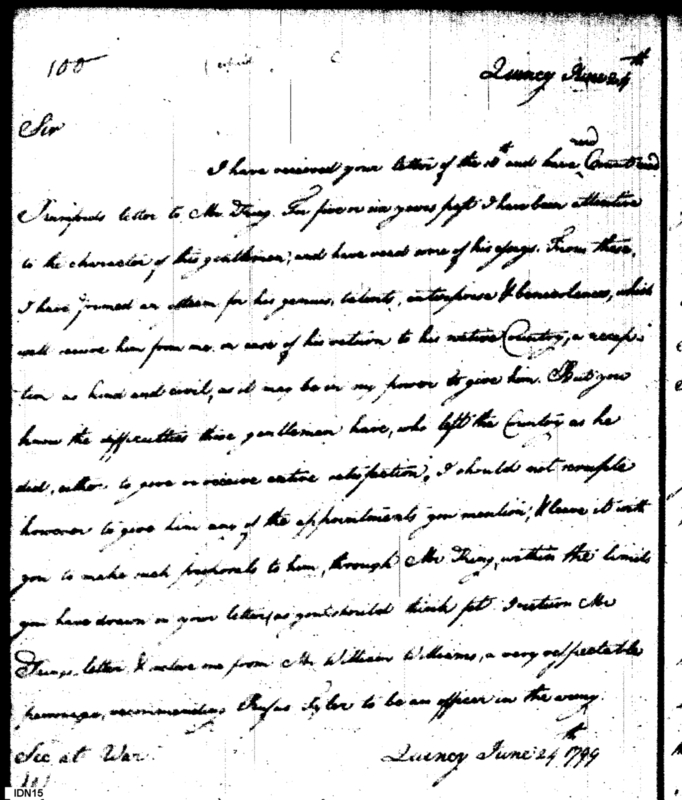 100
Quincy June 24th
Sir
I have received your letter of the 18th and have read Count
Rumfords letter to Mr. King. For five or six years past I have been attentive
to the character of this gentleman, and have read some of his essays. From these,
I have formed an esteem for his genius, talents, enterprise & benevolence, which
will secure him from me in case of his return to his native Country, a recep
tion as kind and civil, as it may be in my power to give him. But you
know the difficulties those gentlemen have, who left the Country as he
did, either to give or receive entire satisfaction; I should not scruple
however to give him any of the appointments you mention, & leave it with
you to make such proposals to him, through Mr King, within the limits
you have drawn in your letter, as you should think fit. I return Mr
Kings letter & inclose one from Mr William Williams, a very respectable
personage, recommending Rufus Tyler to be an officer in the army.
Sec at War
Quincy June 24th 1799
101
IDN15